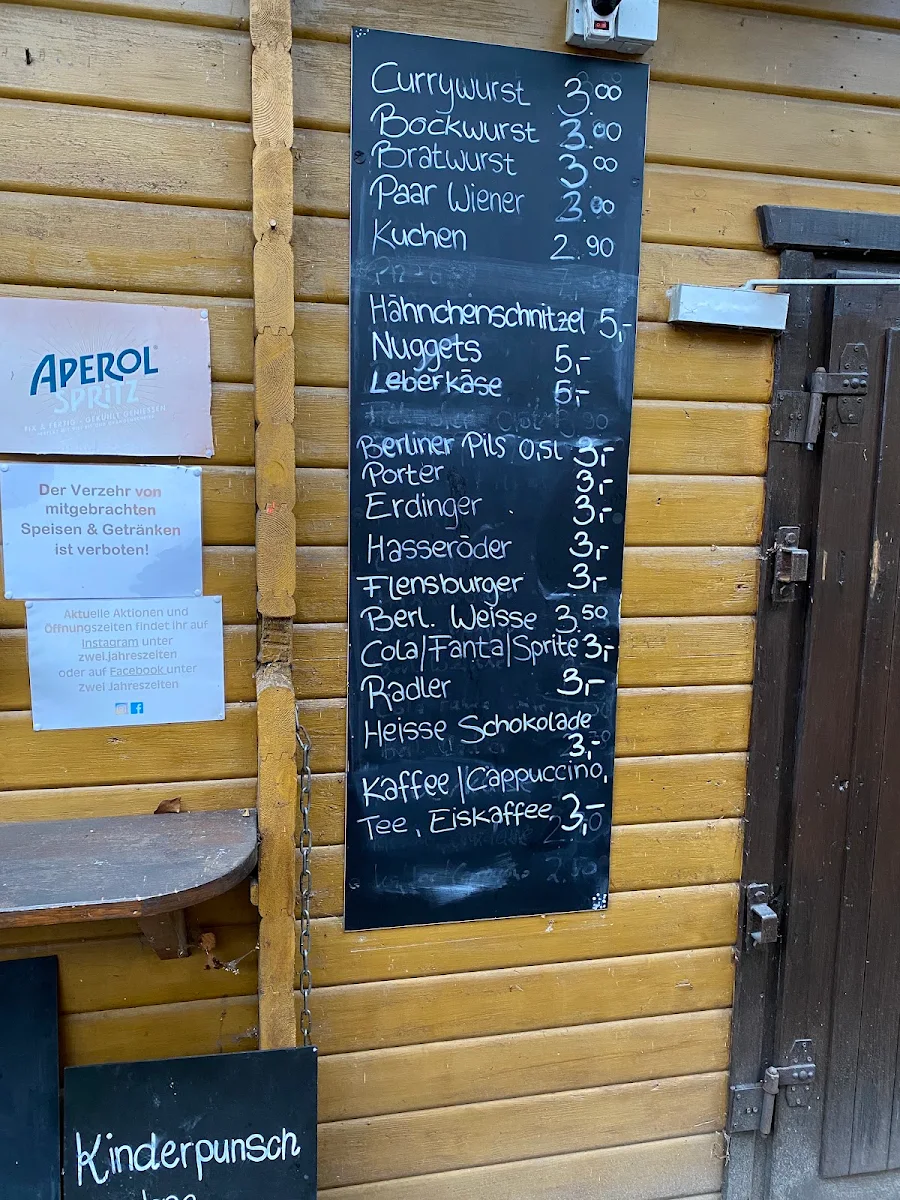 Currywurst 3.00
Bockwurst 3.00
Bratwurst 3.00
Paar Wiener 3.00
Kuchen 2.90
Hähnchenschnitzel 5,-
Nuggets 5,-
Leberkäse 5,-
Berliner Pils 0,5L 3,-
Porter 3,-
Erdinger 3,-
Hasseröder 3,-
Flensburger 3,-
Berl. Weisse 3,50
Cola/Fanta/Sprite 3,-
Radler 3,-
Heisse Schokolade
3,-
Kaffee/Cappuccino,
Tee, Eiskaffee 3,-
APEROL
SPRITZ
Der Verzehr von
mitgebrachten
Speisen & Getränken
ist verboten!
Aktuelle Aktionen und
Öffnungszeiten findet ihr auf
Instagram unter
zwei.jahreszeiten
oder auf Facebook unter
Zwei Jahreszeiten
Kinderpunsch